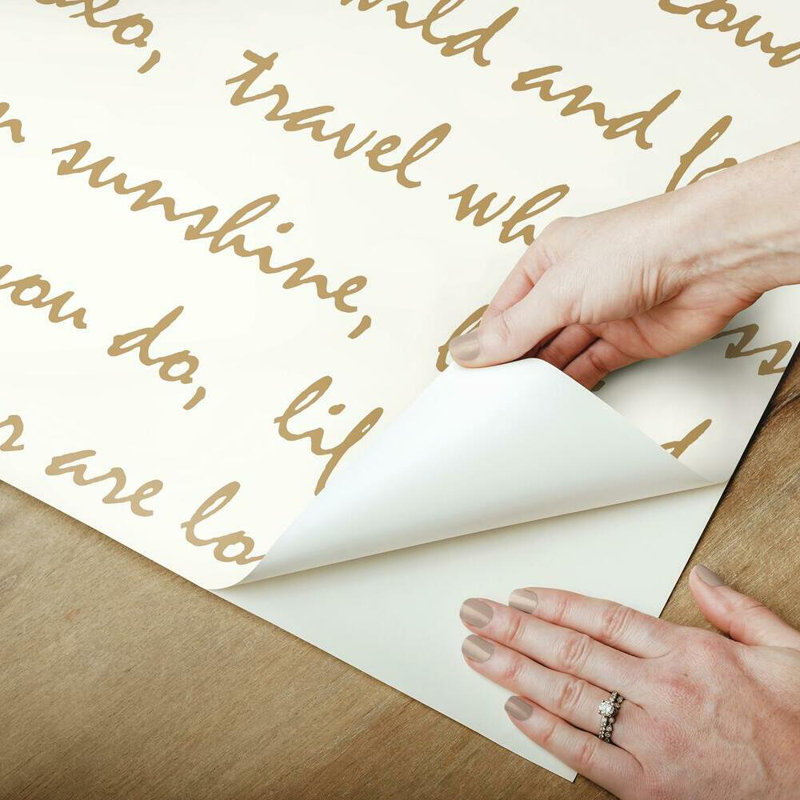 loud
wild and
xoxo, travel wh ss
sunshine,
you do, lif
are lo